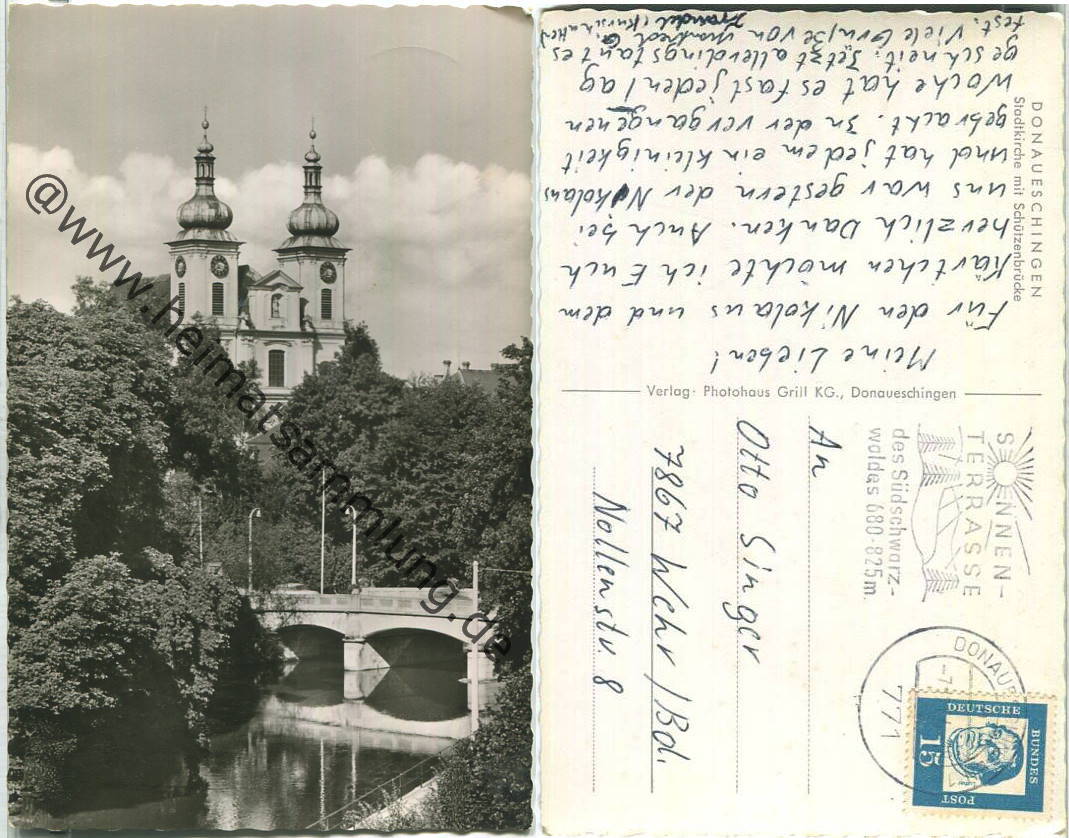 @www.heimatsammlung.de
DONAUESCHINGEN
Stadtkirche mit Schützenbrücke
Meine Lieben!
Für den Nikolaus und dem
Kärtchen möchte ich Euch
herzlich Danken. Auch bei
uns war gestern der Nikolaus
und hat jedem ein Kleinigkeit
gebracht. In der vergangenen
Woche hat es fast jeden Tag
geschneit. Jetzt allerdings taut es
fest. Viele Grüße von Manfred
Verlag: Photohaus Grill KG., Donaueschingen
SONNEN-
TERRASSE
des Südschwarz-
waldes 680-825m
DONAUE
-7
771
DEUTSCHE
BUNDES
POST
15
An
Otto Singer
7867 Wehr / Bd.
Nollenstr. 8